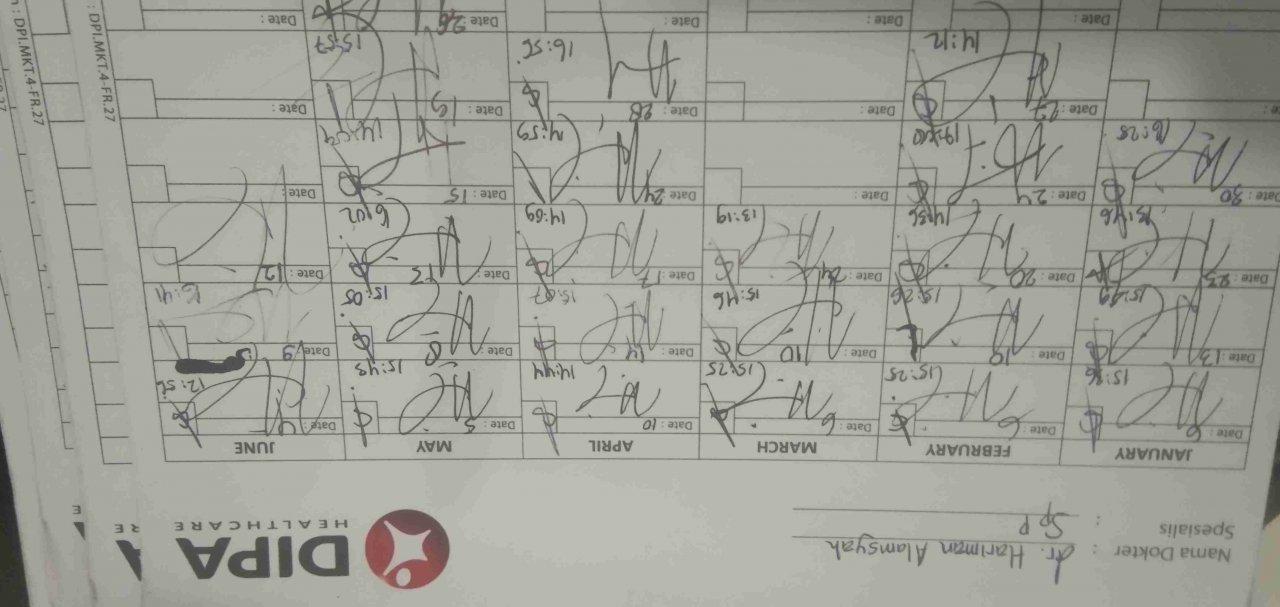 DIPA
HEALTHCARE
Nama Dokter : dr. Hariman Alamsyah
Spesialis : Sp P
JANUARY FEBRUARY MARCH APRIL MAY JUNE
Date : 6 Date : 6 Date : 6 Date : 10 Date : 5 Date : 4
15:36 15:25 15:25 14:44 15:43 12:56
Date : 13 Date : 19 Date : 10 Date : 14 Date : 8 Date : 9
15:49 15:26 15:46 15:07 15:05 15:41
Date : 23 Date : 20 Date : 24 Date : 17 Date : 13 Date : 12
15:46 14:36 13:19 14:09 16:02
Date : 30 Date : 24 Date : Date : 24 Date : 15 Date :
16:25 14:59
Date : Date : 27 Date : Date : 28 Date : 19 Date :
14:12 16:56 15:57
Date : Date : Date : Date : Date : 26 Date :
: DPI.MKT.4-FR.27
: DPI.MKT.4-FR.27